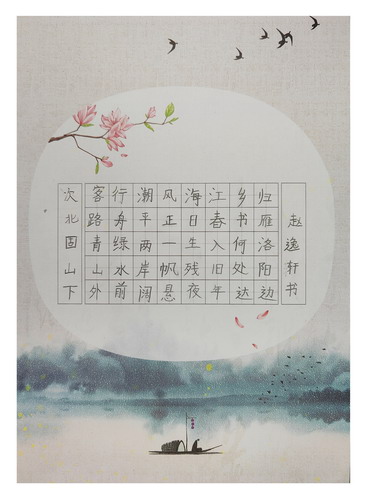 次北固山下
客路青山外
行舟绿水前
潮平两岸阔
风正一帆悬
海日生残夜
江春入旧年
乡书何处达
归雁洛阳边
赵逸轩书